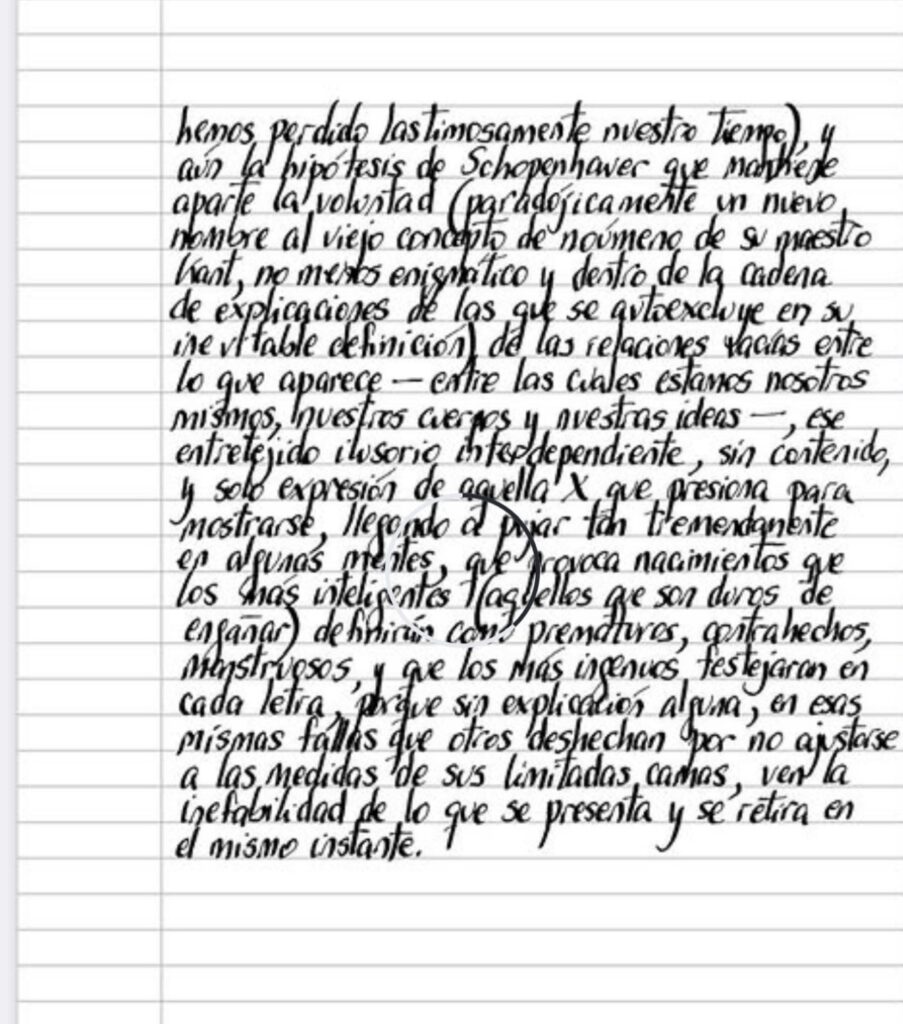 hemos perdido lastimosamente nuestro tiempo), y
aún la hipótesis de Schopenhauer que mantiene
aparte la voluntad (paradójicamente un nuevo
nombre al viejo concepto de noúmeno de su maestro
Kant, no menos enigmático y dentro de la cadena
de explicaciones de las que se autoexcluye en su
inevitable definición) de las relaciones vacías entre
lo que aparece — entre las cuales estamos nosotros
mismos, nuestros cuerpos y nuestras ideas —, ese
entretejido ilusorio interdependiente, sin contenido,
y solo expresión de aquella X que presiona para
mostrarse, llegando a pujar tan tremendamente
en algunas mentes, que provoca nacimientos que
los más inteligentes (aquellos que son duros de
engañar) definirán como prematuros, contrahechos,
monstruosos, y que los más ingenuos festejaran en
cada letra, porque sin explicación alguna, en esas
mismas fallas que otros deshechan por no ajustarse
a las medidas de sus limitadas camas, ven la
inefabilidad de lo que se presenta y se retira en
el mismo instante.